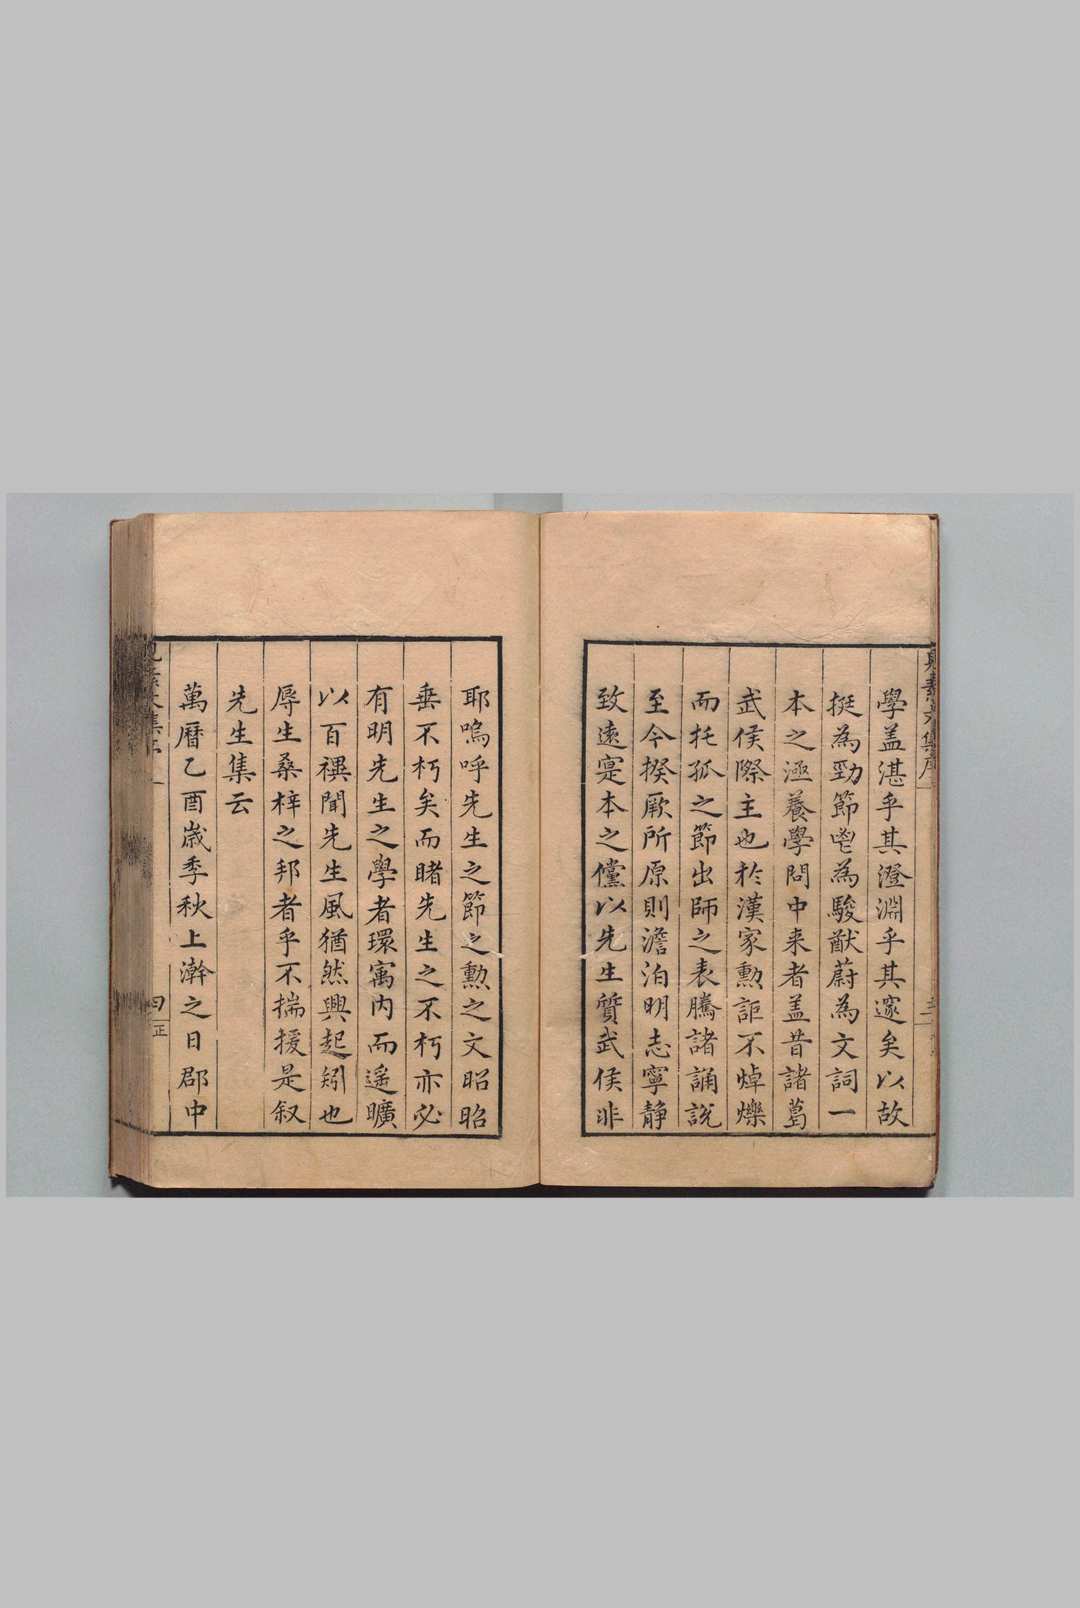 學盖湛乎其澄淵乎其邃矣以故
挺為勁節鬯為駿猷蔚為文詞一
本之涵養學問中来者盖昔諸葛
武侯際主也於漢家勲詎不焯爍
而托孤之節出師之表騰諸誦説
至今揆厥所原則澹泊明志寧静
致遠寔本之儻以先生質武侯非
耶嗚呼先生之節之勲之文昭昭
垂不朽矣而睹先生之不朽亦必
有明先生之學者環寓内而遙曠
以百禩聞先生風猶然興起矧也
辱生桑梓之邦者乎不揣援是叙
先生集云
萬曆乙酉歳季秋上澣之日郡中
四
正